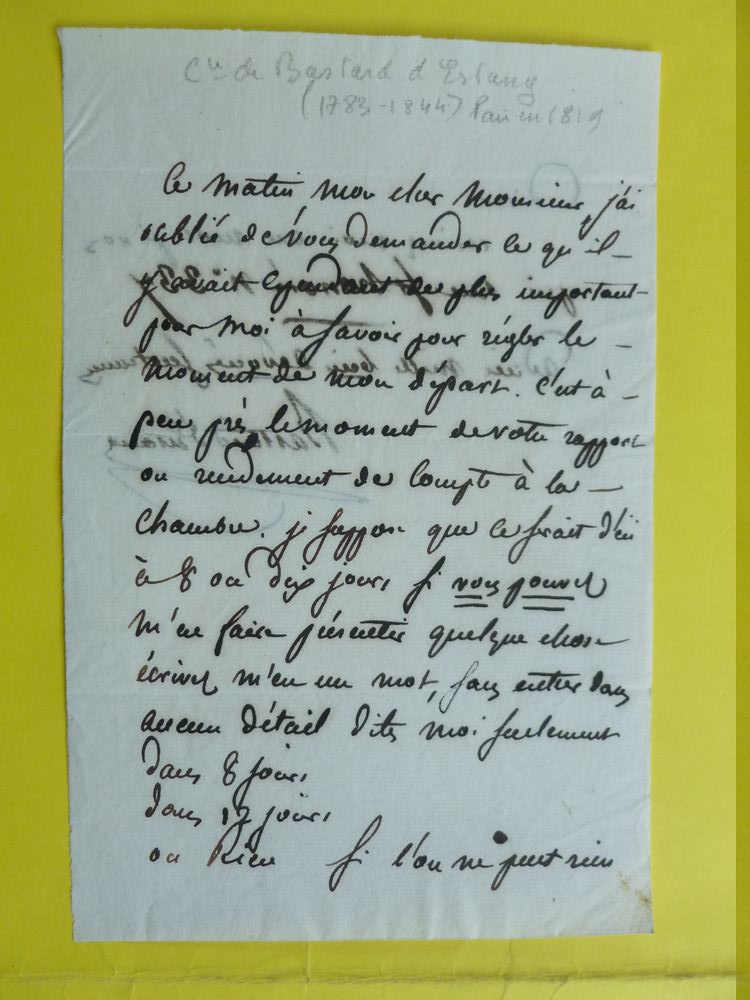 Cte de Bastard d'Estang
(1783-1844) Pair en 1819
Ce matin, mon cher Monsieur, j'ai
oublié de vous demander ce qu'il
y avait cependant de plus important
pour moi à savoir pour régler le
moment de mon départ. C'est à
peu près, le moment de votre rapport
ou rendement de compte à la
chambre. je suppose que ce serait d'ici
à 8 ou dix jours si vous pouvez
m'en faire présenter quelque chose
écrivez m'en un mot, sans entrer dans
aucun détail dites moi seulement
dans 8 jours
dans 12 jours
ou Rien si l'on ne peut rien